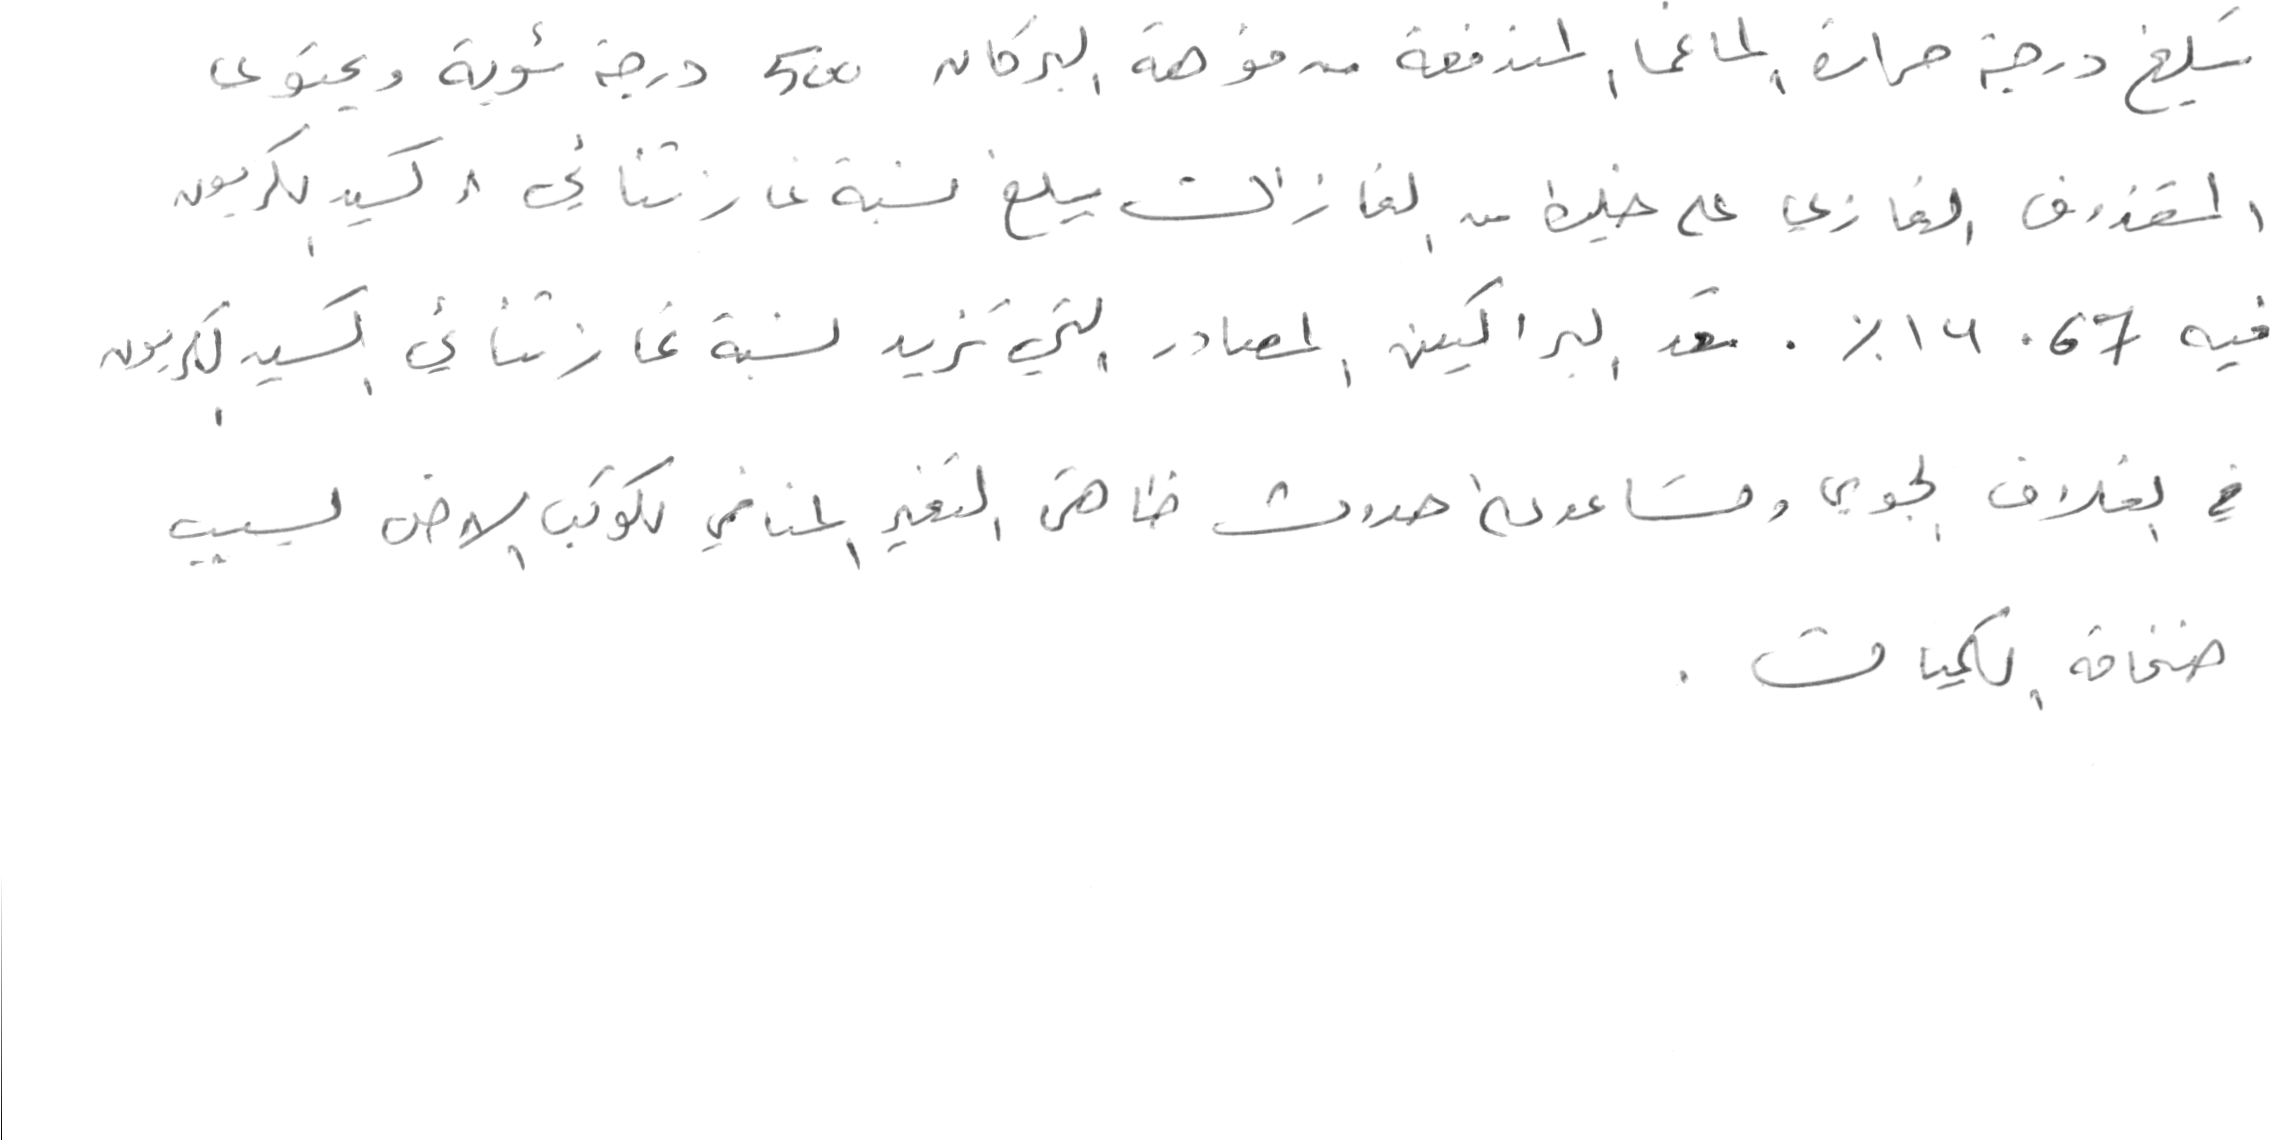 تبلغ درجة حرارة الماغما المندفعة من فوهة البركان 500 درجة مئوية ويحتوى
المقذوف الغازي على خليط من الغازات يبلغ نسبة غاز ثنائي اكسيد الكربون
فيه 67 . ١٤ ٪ . تعد البراكين المصادر التي تزيد نسبة غاز ثنائي اكسيد الكربون
في الغلاف الجوي ومساعد على حدوث ظاهرة التغير المناخي لكوكب الارض بسبب
ضخامة الكميات .